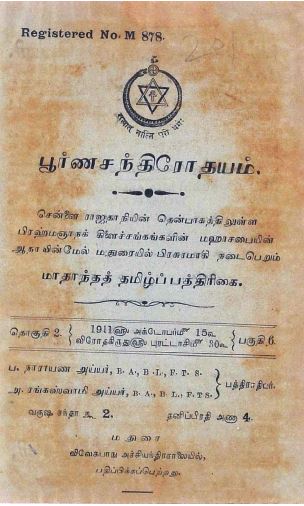 Registered No. M 878.
सत्यात् नास्ति परो धर्मः
பூர்ணசந்திரோதயம்.
சென்னை ராஜதானியின் தென்பாகத்திலுள்ள
பிரஹ்மஞானக் கிளைச்சங்கங்களின் மஹாசபையின்
ஆதரவின்மேல் மதுரையில் பிரசுரமாகி நடைபெறும்
மாதாந்தத் தமிழ்ப்பத்திரிகை.
தொகுதி 2. 1911௵ அக்டோபர்௴ 15௳ பகுதி 6.
விரோதகிருது௵ புரட்டாசி௴ 30௳
ப. நாராயண அய்யர், B. A., B. L., F. T. S.
பத்திராதிபர்.
அ. ரங்கஸ்வாமி அய்யர், B. A., B. L., F. T. S.
வருஷ சந்தா ரூ 2. தனிப்பிரதி அணா 4.
மதுரை
விவேகபாநு அச்சியந்திரசாலையில்,
பதிப்பிக்கப்பெற்றது.